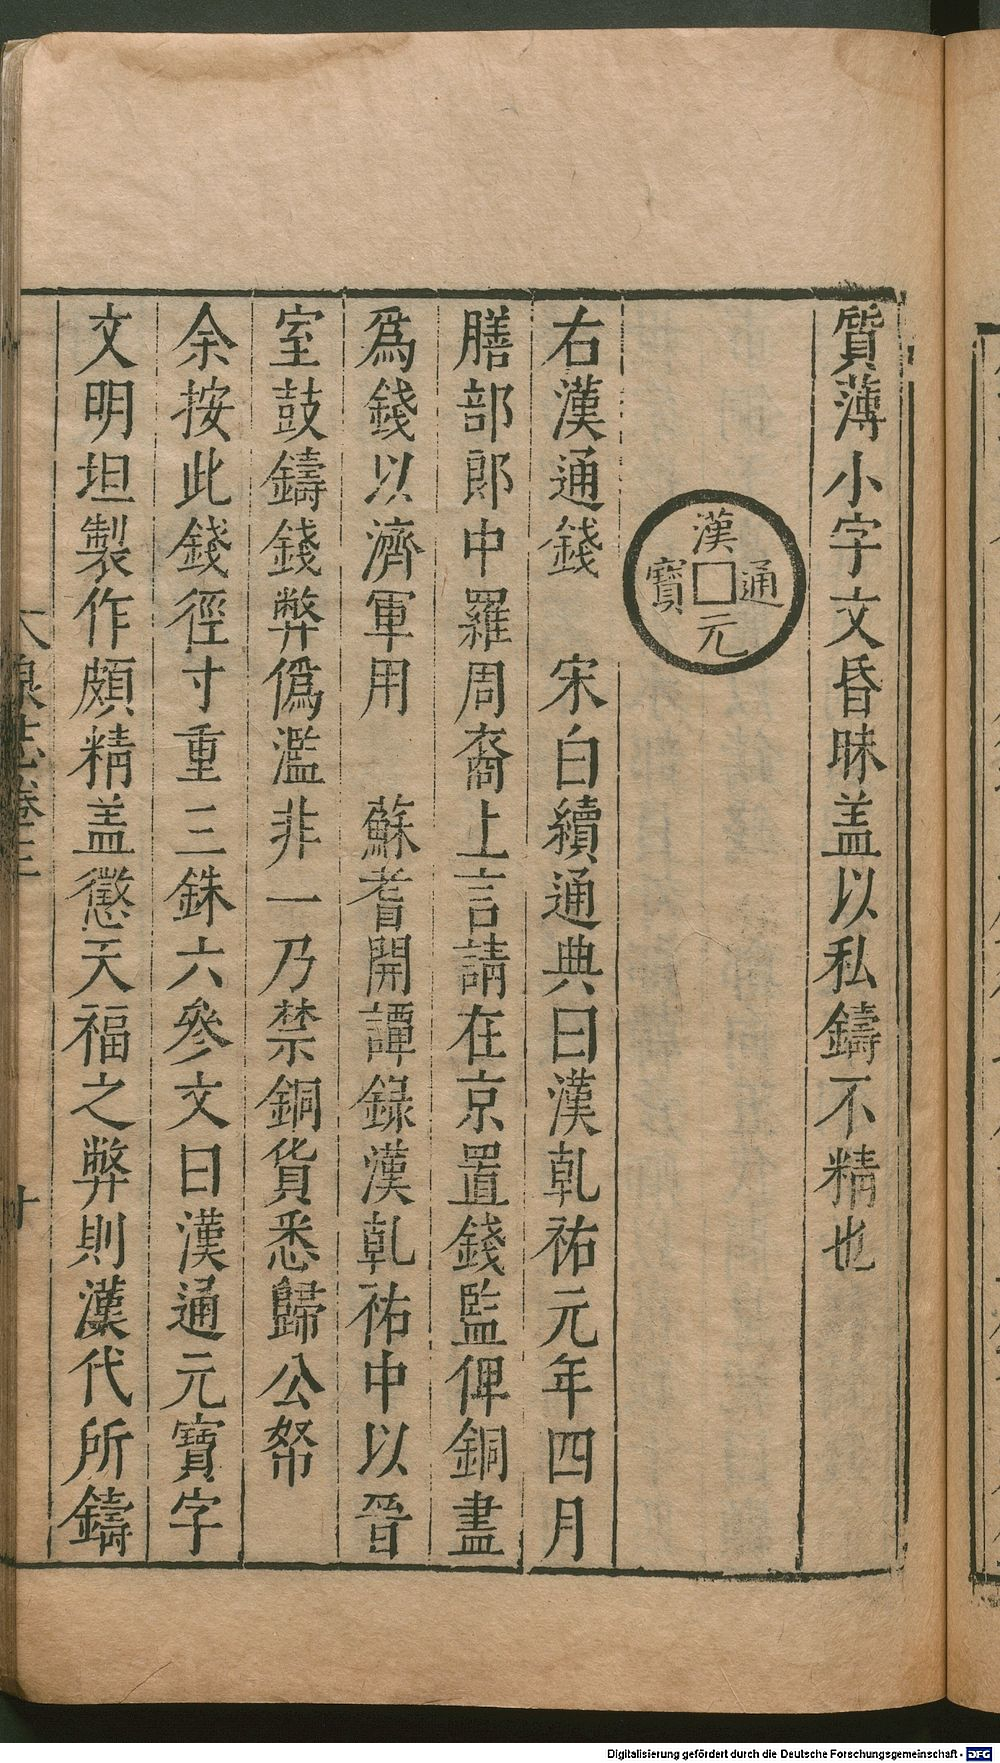 質薄小字文昏昧盖以私鑄不精也
漢
通
元
寶
右漢通錢　宋白續通典曰漢乹祐元年四月
膳部郎中羅周裔上言請在京置錢監俾銅盡
爲錢以濟軍用　蘇耆開譚錄漢乹祐中以晉
室鼓鑄錢弊僞濫非一乃禁銅貨悉歸公帑
余按此錢徑寸重三銖六參文曰漢通元寶字
文明坦製作頗精盖懲天福之弊則漢代所鑄
泉志卷三
十
Digitalisierung gefördert durch die Deutsche Forschungsgemeinschaft - DFG